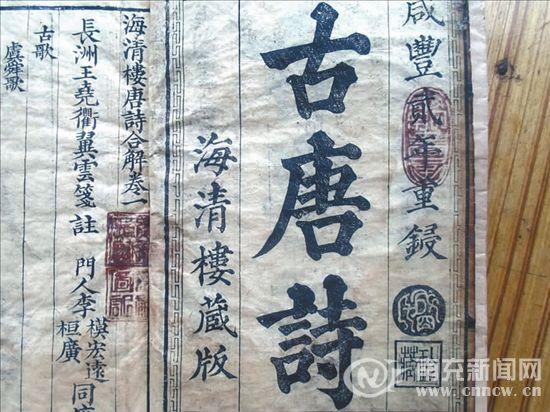 咸豐貳年重鋟
古唐詩
海清樓藏版
海清樓唐詩合解卷一
長洲王堯衢翼雲箋註 門人李模宏遠桓廣同
古歌
虞舜歌
南充新闻网
www.cnncw.cn